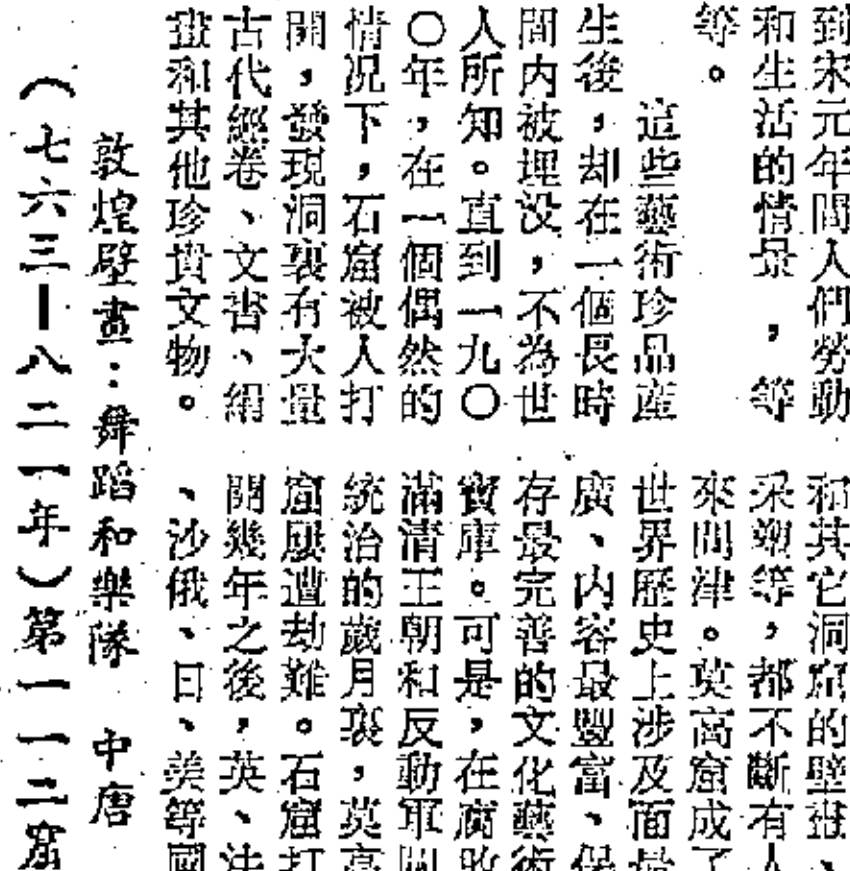 到宋元年間人們勞動
和生活的情景，等
等。
這些藝術珍品產
生後，却在一個長時
間内被埋没，不為世
人所知。直到一九〇
〇年，在一個偶然的
情况下，石窟被人打
開，發現洞裏有大量
古代經卷、文書、絹
畫和其他珍貴文物。
和其它洞窟的壁畫、
采塑等，都不斷有人
來問津。莫高窟成了
世界歷史上涉及面最
廣、内容最豐富、保
存最完善的文化藝術
寳庫。可是，在腐敗
滿清王朝和反動軍閥
統治的歲月裏，莫高
窟屢遭劫難。石窟打
開幾年之後，英、法
、沙俄、日、美等國
敦煌壁畫：舞蹈和樂隊　中唐
（七六三—八二一年）第一一二窟